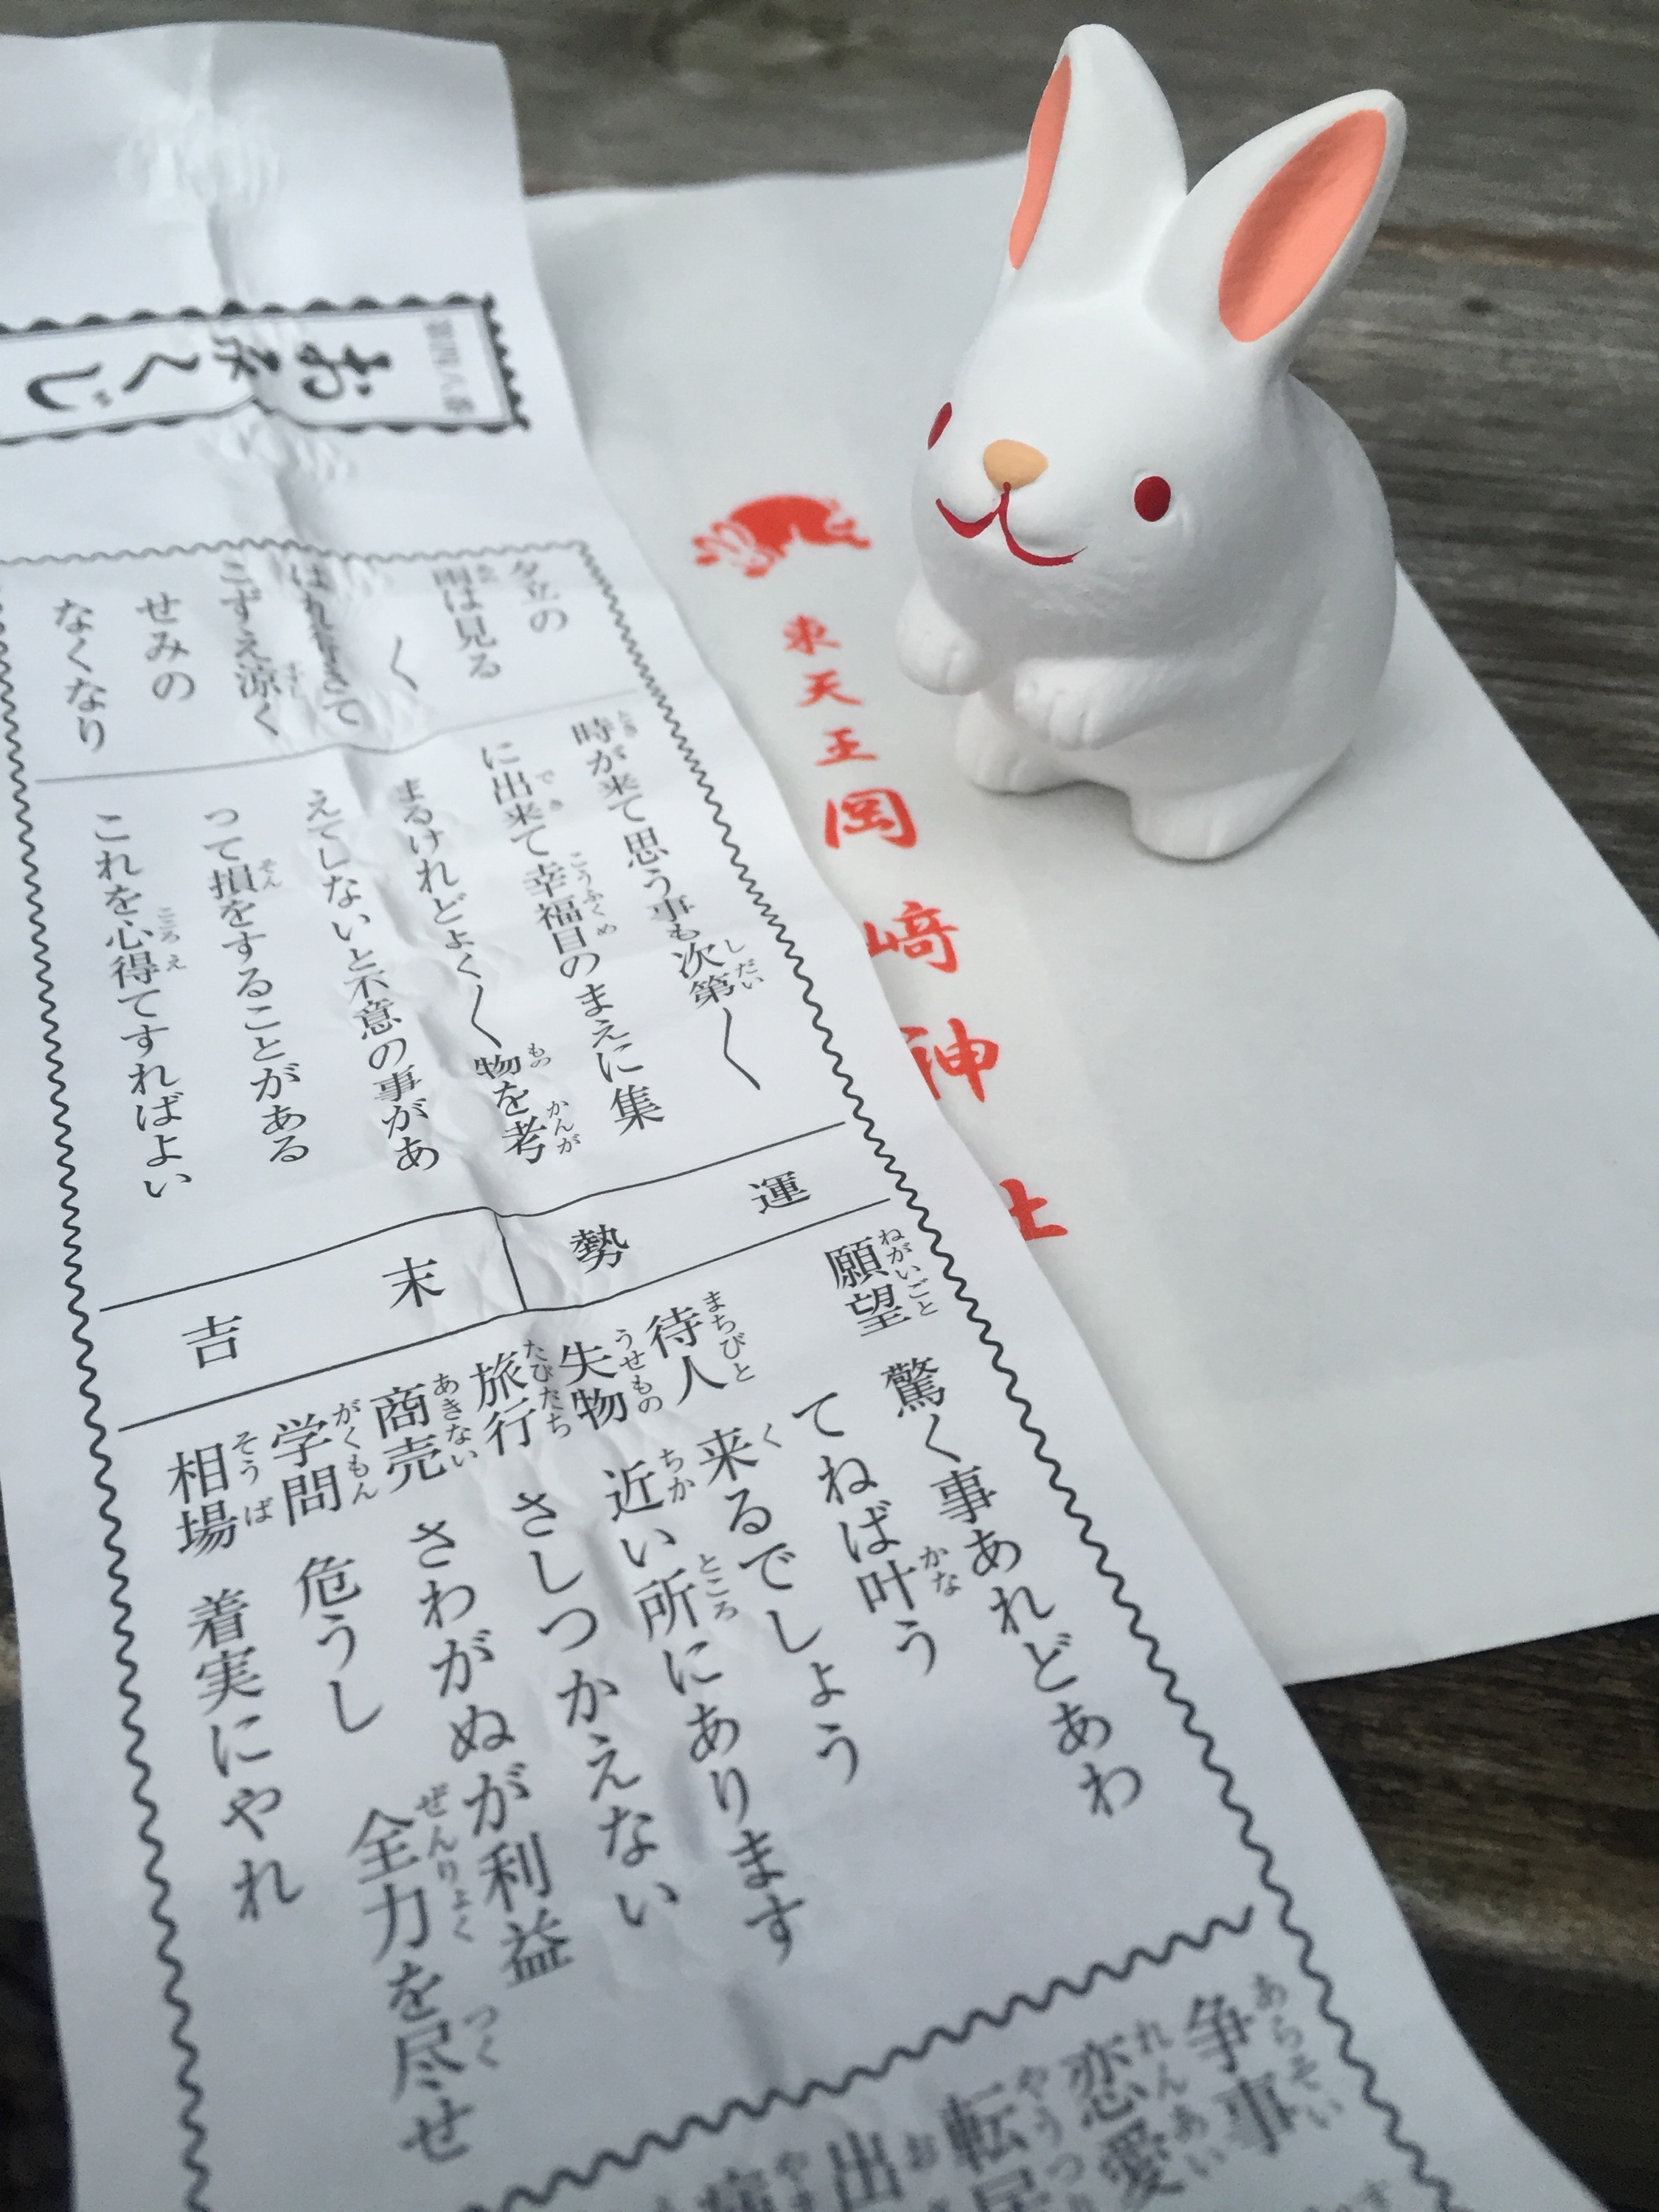 おみくじ
夕立の
雨は見る
〱
はれすぎて
こずえ涼く
せみの
なくなり
時が来て思う事も次第〱
に出来て幸福目のまえに集
まるけれどよく〱物を考
えてしないと不意の事があ
って損をすることがある
これを心得てすればよい
運勢
末吉
願望 驚く事あれどあわ
てねば叶う
待人 来るでしょう
失物 近い所にあります
旅行 さしつかえない
商売 さわがぬが利益
学問 危うし 全力を尽せ
相場 着実にやれ
争事
恋愛
東天王 岡﨑神社